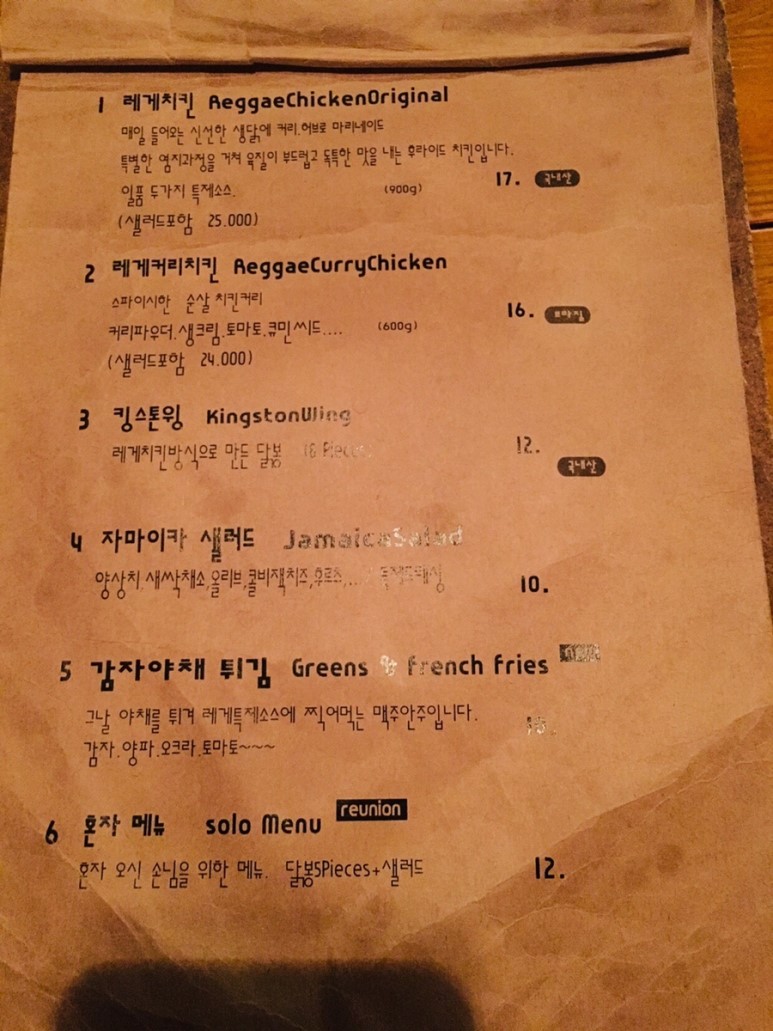 1 레게치킨 ReggaeChickenOriginal
매일 들어오는 신선한 생닭에 커리.허브로 마리네이드
특별한 염지과정을 거쳐 육질이 부드럽고 독특한 맛을 내는 후라이드 치킨입니다.
일품 두가지 특제소스. (900g) 17. 국내산
(샐러드포함 25.000)
2 레게커리치킨 ReggaeCurryChicken
스파이시한 순살 치킨커리 16. 브라질
커리파우더.생크림.토마토.큐민씨드.... (600g)
(샐러드포함 24.000)
3 킹스톤윙 KingstonWing
레게치킨방식으로 만든 닭봉 Pieces 12.
국내산
4 자마이카 샐러드 JamaicaSalad
양상치.새싹채소,올리브,콜비잭치즈,후르츠,... 특제드레싱 10.
5 감자야채 튀김 Greens & french fries
그날 야채를 튀겨 레게특제소스에 찍어먹는 맥주안주입니다.
감자.양파.오크라.토마토~~~
6 혼자 메뉴 solo Menu reunion
혼자 오신 손님을 위한 메뉴. 닭봉5Pieces+샐러드 12.